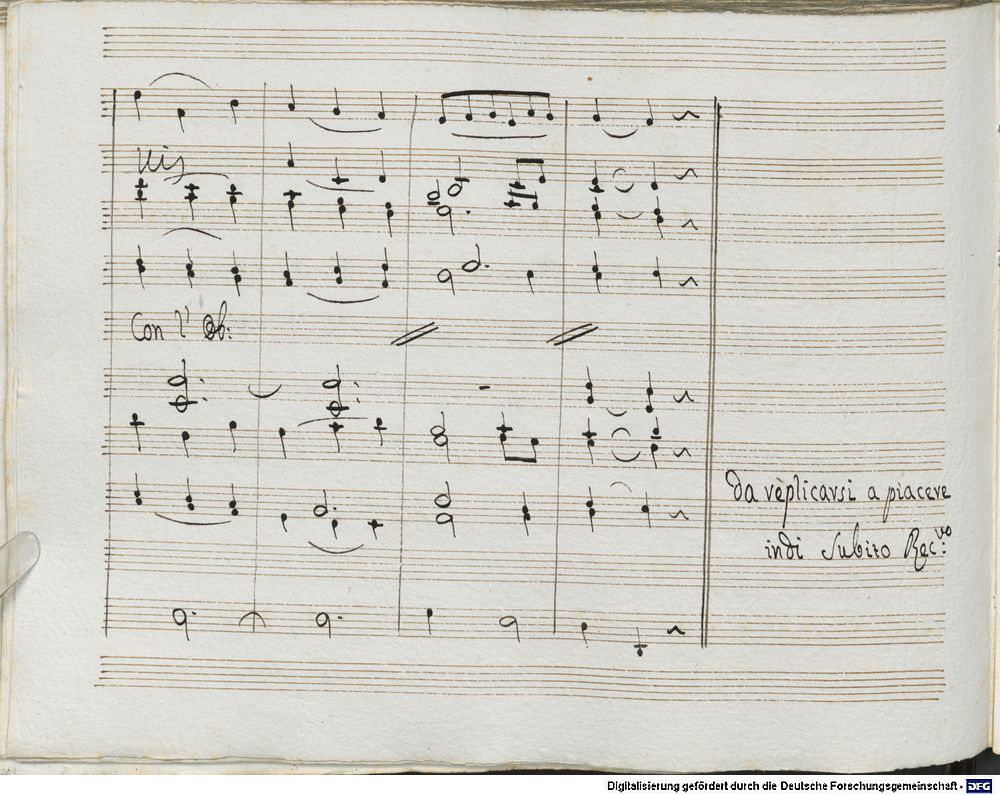 Unis
Con l' Ob:
da replicarsi a piacere
indi Subito Rec:vo
Digitalisierung gefördert durch die Deutsche Forschungsgemeinschaft - DFG